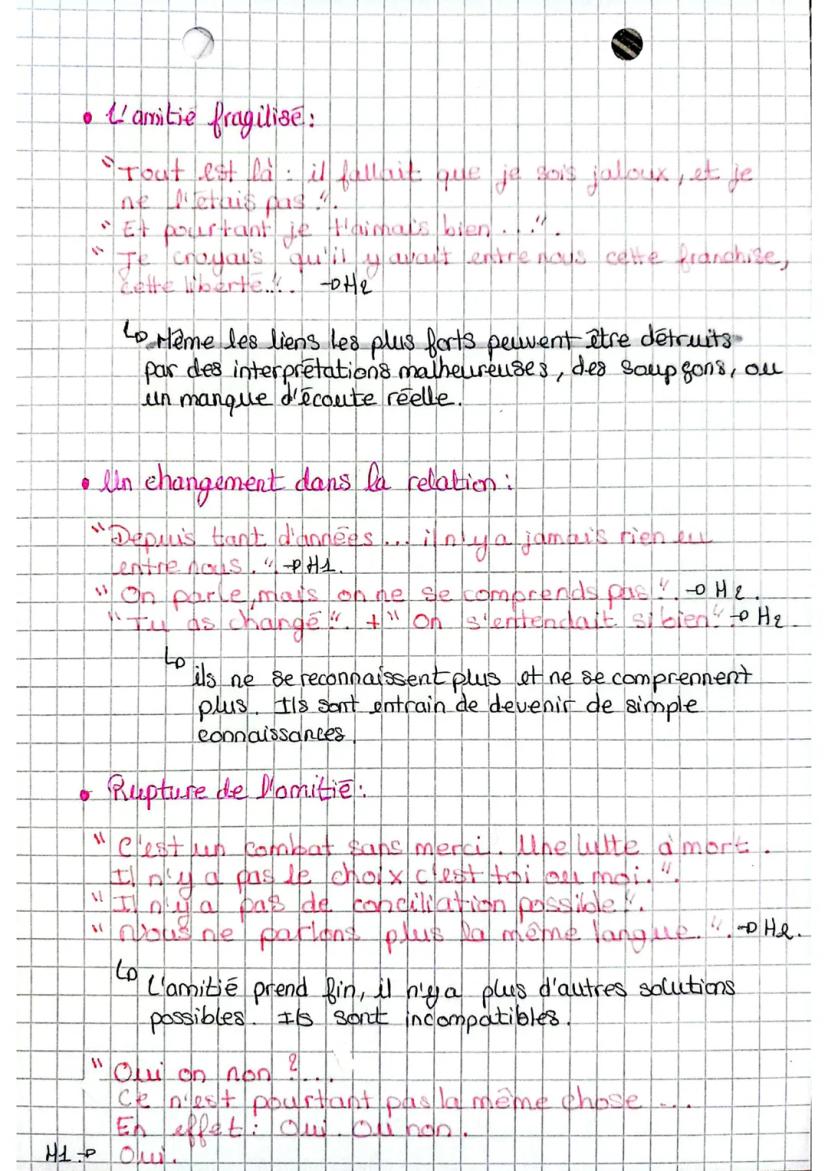 • L'amitié fragilisé:
"Tout est là : il fallait que je sois jaloux, et je
ne l'étais pas".
"Et pourtant je t'aimais bien...".
"Je croyais qu'il y avait entre nous cette franchise,
cette liberté.". → H2
↳ Même les liens les plus forts peuvent être détruits
par des interprétations malheureuses, des soupçons, ou
un manque d'écoute réelle.
• Un changement dans la relation:
"Depuis tant d'années... il n'y a jamais rien eu
entre nous." → H1.
"On parle, mais on ne se comprends pas". → H2.
"Tu as changé". + "On s'entendait si bien" → H2.
↳ ils ne se reconnaissent plus et ne se comprennent
plus. Ils sont entrain de devenir de simple
connaissances.
• Rupture de l'amitié:
"C'est un combat sans merci. Une lutte à mort.
Il n'y a pas le choix c'est toi ou moi.".
"Il n'y a pas de conciliation possible".
"Nous ne parlons plus la même langue.". → H2.
↳ L'amitié prend fin, il n'y a plus d'autres solutions
possibles. Ils sont incompatibles.
"Oui on non ?...
Ce n'est pourtant pas la même chose...
En effet : Oui. Ou non.
H1 → Oui.